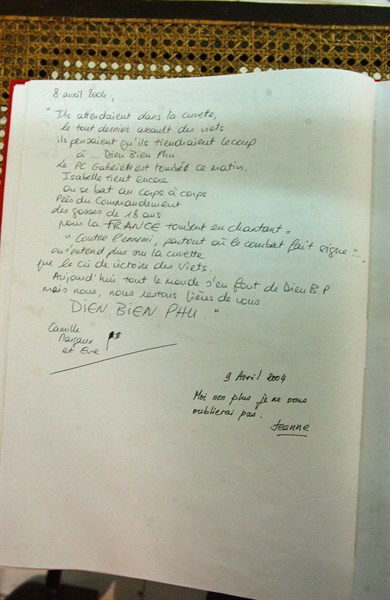 8 avril 2004,
" Ils attendaient dans la cuvette,
le tout dernier assaut des viets
ils pensaient qu'ils tiendraient le coup
à ... Dien Bien Phu.
Le PC Gabrielle est tombé ce matin.
Isabelle tient encore
On se bat au corps à corps.
Près du Commandement
des gosses de 18 ans
pour la FRANCE tombent en chantant "
" Contre l'ennemi, partout où le combat fait signe "...
on n'entend plus sur la cuvette
que le cri de victoire des Viets.
Aujourd'hui tout le monde s'en fout de Dien B.P
mais nous, nous restons fières de vous
DIEN BIEN PHU "
Camille
Margaux
et Eve
9 Avril 2004
Moi non plus je ne vous
oublierai pas.
Jeanne